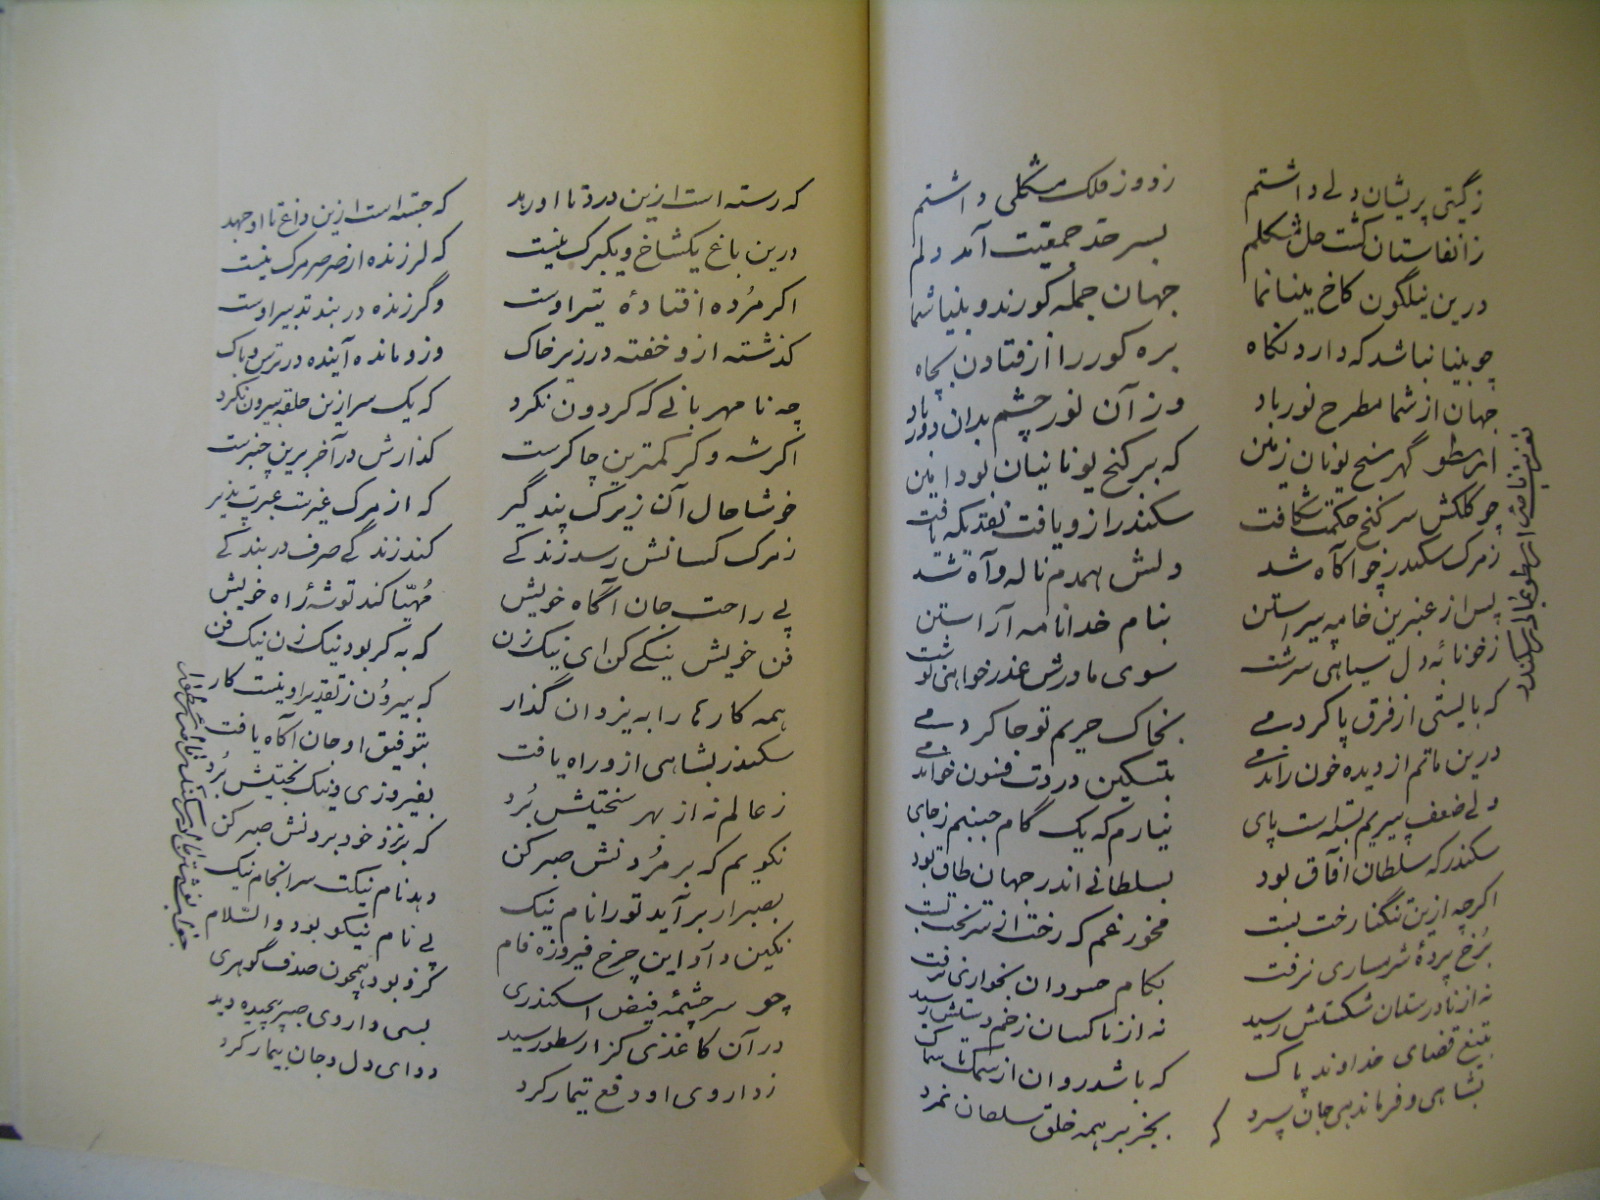 زگیتی پریشان دلی داشتم
ز دور فلک مشکلی داشتم
ز انفاستان گشت حل مشکلم
بسرحد جمعیت آمد دلم
درین نیلگون کاخ بینا نما
جهان جمله کورند و بینا شما
چو بینا نباشد که دارد نگاه
بره کور را از فتادن بچاه
جهان از شما مطرح نور باد
وز آن نور چشم بدان دور باد
ارسطو گهر سنج یونان زمین
که بر گنج یونانیان بود امین
چو کلکش سر گنج حکمت شکافت
سکندر ازو یافت نقدیکه یافت
ز مرگ سکندر چو آگاه شد
دلش همدم ناله و آه شد
پس از عنبرین خامه پیراستن
بنام خدا نامه آراستن
ز خونابه دل سیاهی سرشت
سوی مادرش عذر خواهی نوشت
که بایستی از فرق پا کردمی
بخاک حریم تو جا کردمی
درین ماتم از دیده خون راندمی
بتسکین دردت فسون خواندمی
ولی ضعف پیریم بسته است پای
نیارم که یک گام جنبم ز جای
سکندر که سلطان آفاق بود
بسلطانی اندر جهان طاق بود
اگرچه ازین تنگنا رخت بست
مخور غم که رخت از سر تخت بست
برخ پرده شرمساری نرفت
بکام حسودان بخواری نرفت
نه از نادرستان شکستش رسید
نه از ناکسان زخم دستش رسید
بتیغ قضای خداوند پاک
که باشد روان از سمک تا سماک
بشاهی و فرماندهی جان سپرد
بجز بر همه خلق سلطان نمرد
تعزیت نامه ارسطو بمادر سکندر
که رسته است ازین درد تا او رهد
که جسته است ازین داغ تا او جهد
درین باغ یکشاخ و یکبرگ نیست
که لرزنده از صرصر مرگ نیست
اگر مُرده افتادهٔ تیر اوست
وگر زنده در بند تدبیر اوست
گذشته ازو خفته در زیر خاک
وزو مانده آینده در ترس و باک
چه نامهربانی که گردون نکرد
که یک سر ازین حلقه بیرون نکرد
اگر شه وگر کمترین چاکرست
گذارش در آخر برین چنبرست
خوشا حال آن زیرک پندگیر
که از مرگ غیرست عبرت پذیر
ز مرگ کسانش رسد زندگی
کند زندگی صرف در بندگی
پی راحت جان آگاه خویش
مُهیّا کند توشهٔ راه خویش
فن خویش نیکی کن ای نیک زن
که به گر بود نیک زن نیک فن
همه کارها را به یزدان گذار
که بیرون ز تقدیر او نیست کار
سکندر بشاهی ازو راه یافت
بتوفیق او جان آگاه یافت
ز عالم نه از بهر سختیش بُرد
بفیروزی و نیک بختیش بُرد
نگویم که بر مُردنش صبر کن
که بر نزد خود بردنش صبر کن
بصبر ار برآید تو را نام نیک
دهد نام نیکت سرانجام نیک
نگین دار این چرخ فیروزه فام
پی نام نیکو بود والسّلام
چو سرچشمه فیض اسکندری
کزو بود همچون صدف گوهری
در آن کاغذی کز ارسطو رسید
بسی داروی صبر پیچیده دید
ز داروی او دفع تیمار کرد
دوای دل و جان بیمار کرد
جواب نوشتن مادر سکندر نامه ارسطو را